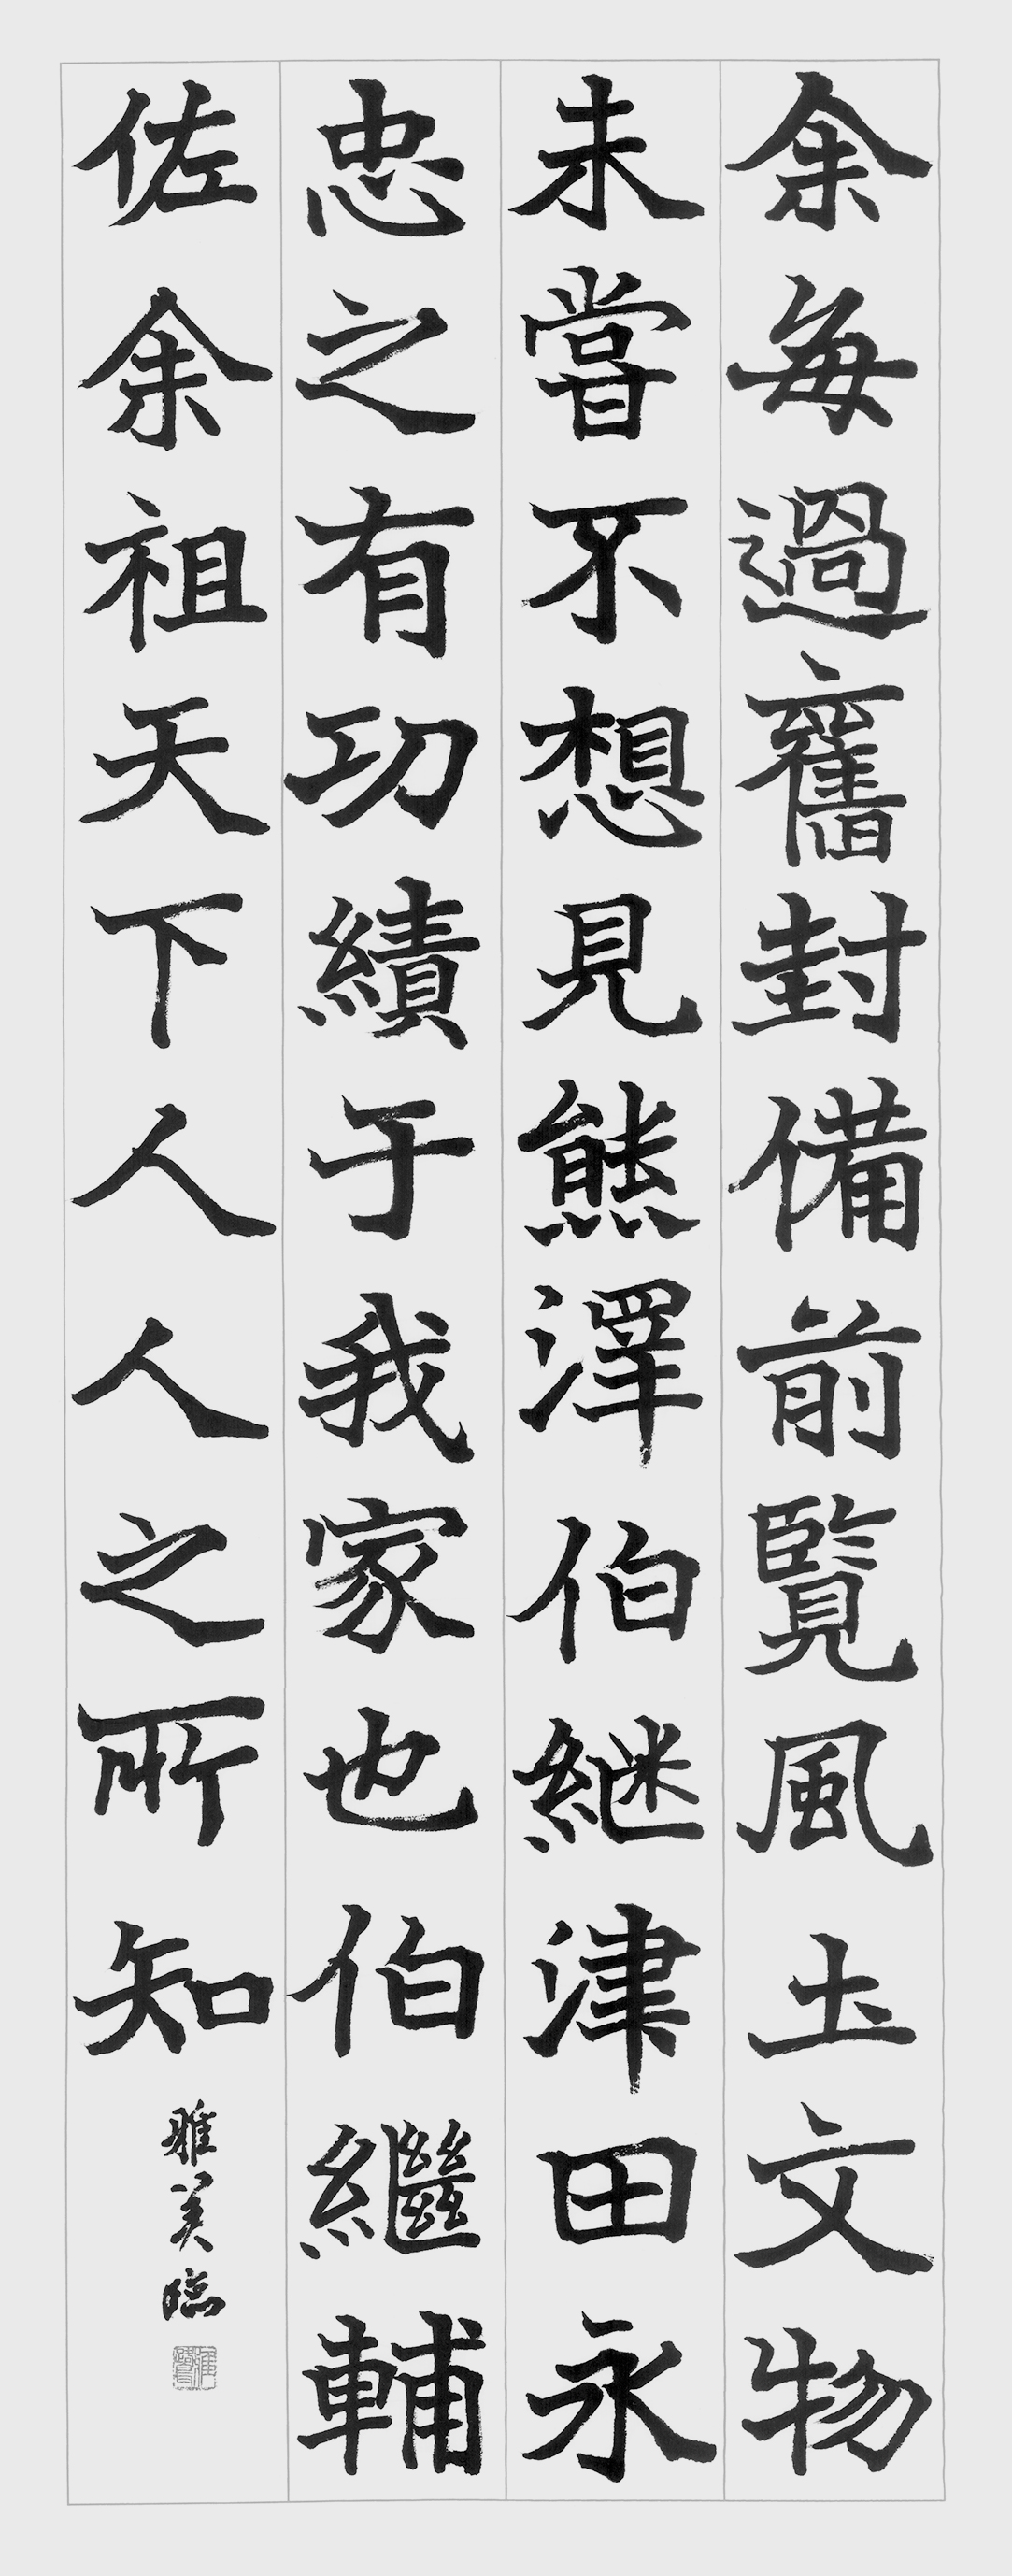 余毎過舊封備前覽風土文物
未嘗不想見熊澤伯継津田永
忠之有功績于我家也伯繼輔
佐余祖天下人人之所知
雅美臨